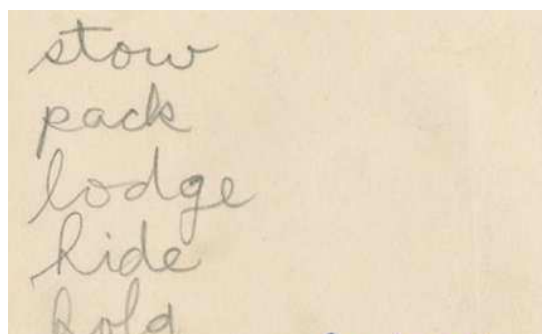 stow
pack
lodge
hide
hold